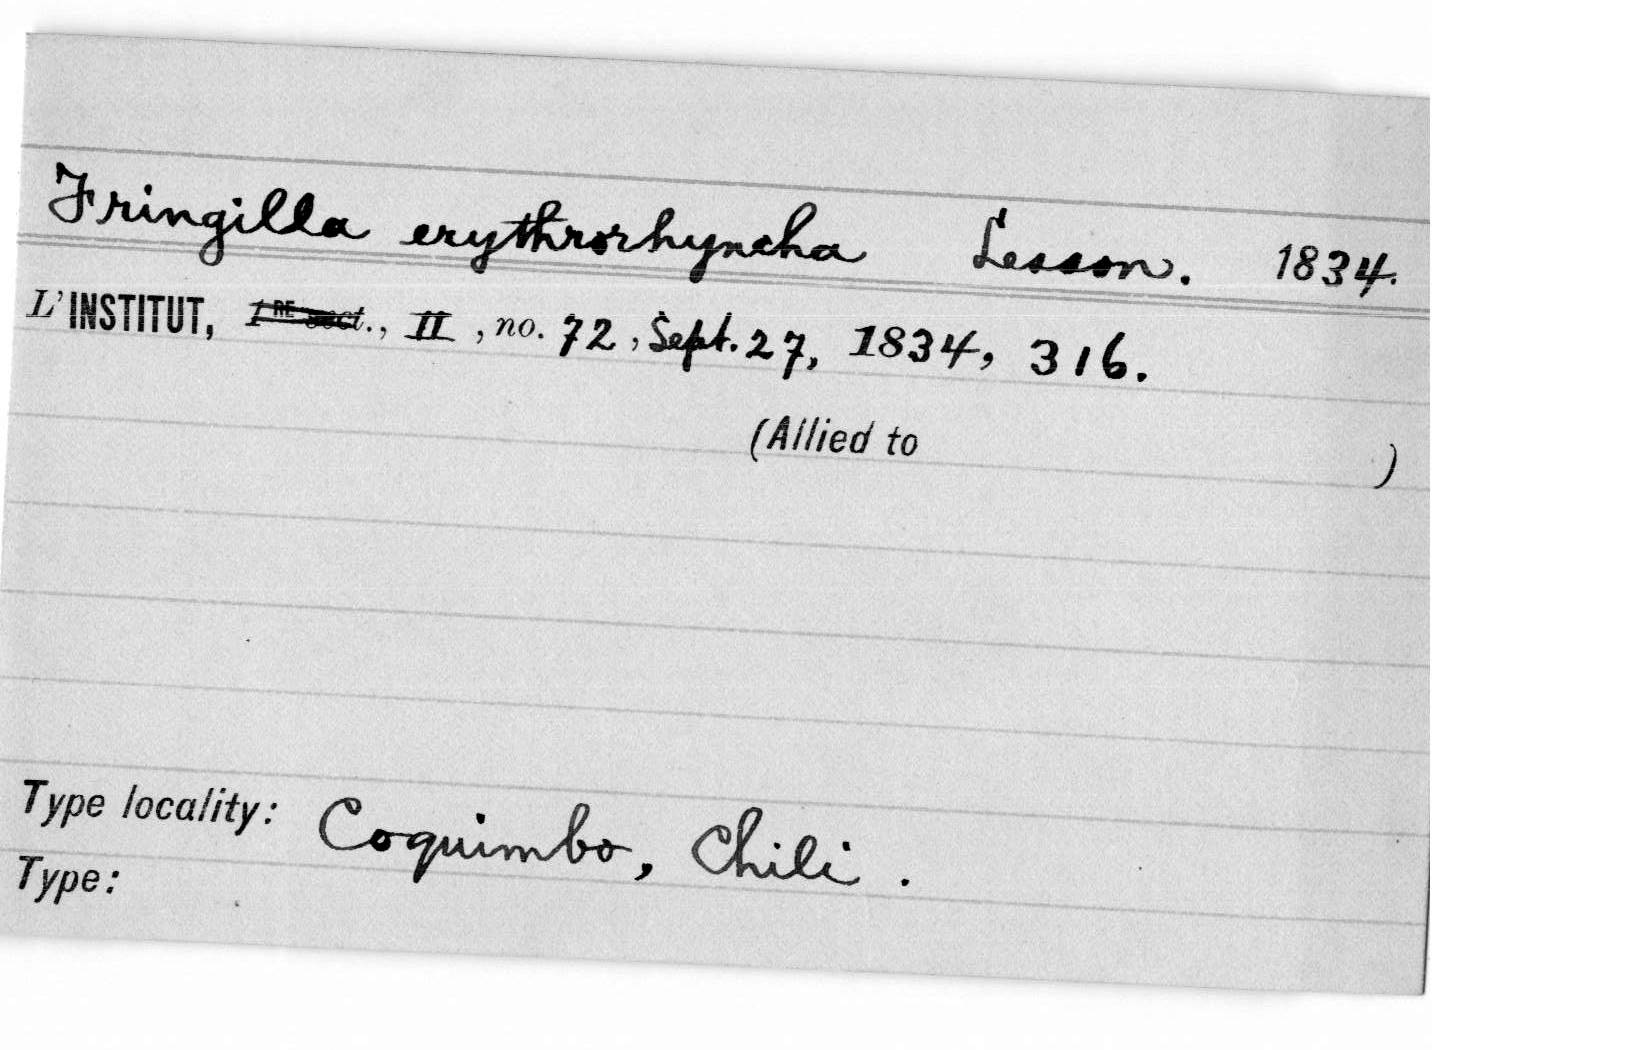 Fringilla erythrorhyncha Lesson. 1834.
L'INSTITUT, 1RE sect., II, no. 72, Sept. 27, 1834, 316.
(Allied to )
Type locality: Coquimbo, Chili.
Type: